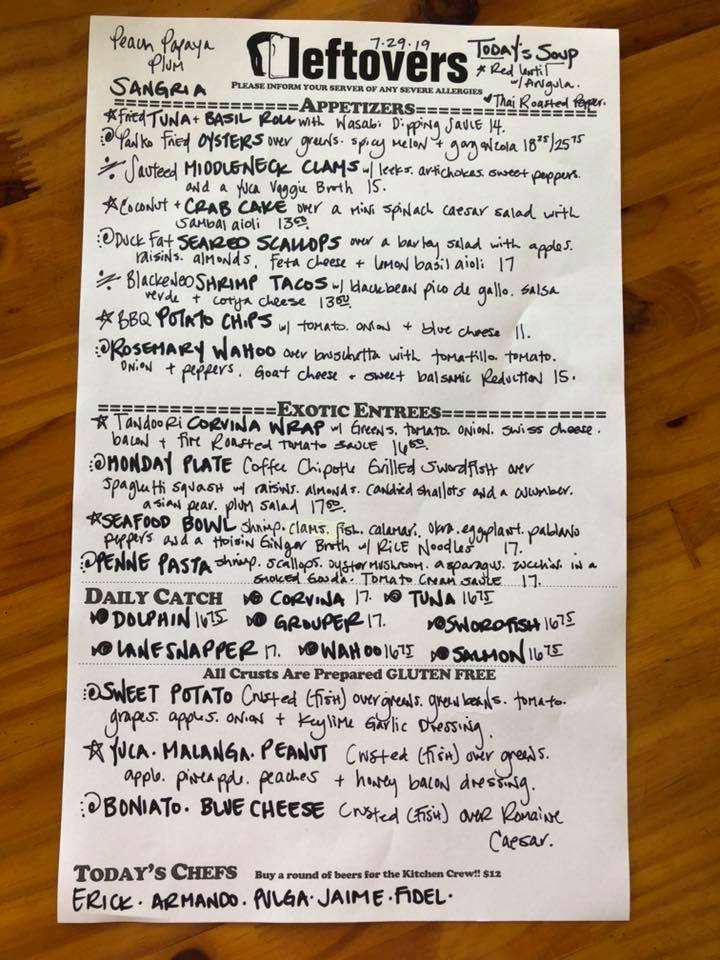 Peach Papaya
Plum
SANGRIA
7.29.19
leftovers
PLEASE INFORM YOUR SERVER OF ANY SEVERE ALLERGIES
TODAY'S SOUP
Red Lentil
w/ Arugula.
Thai Roasted Pepper.
APPETIZERS
Fried TUNA + BASIL ROLL with Wasabi Dipping Sauce 14.
Panko Fried OYSTERS over greens. spicy melon + gorgonzola 18 25/25 75
Sauteed MIDDLENECK CLAMS w/ leeks. artichokes. sweet peppers.
and a Yuca Veggie Broth 15.
Coconut + CRAB CAKE over a mini spinach caesar salad with
sambal aioli 13 50
Duck Fat SEARED SCALLOPS over a barley salad with apples.
raisins. almonds. Feta cheese + lemon basil aioli 17
Blackened SHRIMP TACOS w/ blackbean pico de gallo. salsa
verde + cotija cheese 13 50
BBQ POTATO CHIPS w/ tomato. onion + blue cheese 11.
ROSEMARY WAHOO over bruschetta with tomatillo. tomato.
onion + peppers. Goat cheese + sweet balsamic Reduction 15.
EXOTIC ENTREES
Tandoori CORVINA WRAP w/ Greens. tomato. onion. swiss cheese.
bacon + Fire Roasted Tomato sauce 16 50
MONDAY PLATE Coffee Chipotle Grilled Swordfish over
spaghetti squash w/ raisins. almonds. candied shallots and a cucumber.
asian pear. plum salad 17 50
SEAFOOD BOWL shrimp. clams. fish. calamari. okra. eggplant. pablano
peppers and a Hoisin Ginger Broth w/ Rice Noodles 17.
PENNE PASTA shrimp. scallops. oyster mushroom. asparagus. zucchini in a
smoked Gouda. Tomato Cream sauce 17.
DAILY CATCH CORVINA 17. TUNA 16 75
DOLPHIN 16 75 GROUPER 17. SWORDFISH 16 75
LANESNAPPER 17. WAHOO 16 75 SALMON 16 75
All Crusts Are Prepared GLUTEN FREE
SWEET POTATO Crusted (Fish) over greens. green beans. tomato.
grapes. apples. onion + Keylime Garlic Dressing.
YUCA. MALANGA. PEANUT Crusted (Fish) over greens.
apple. pineapple. peaches + honey bacon dressing.
BONIATO. BLUE CHEESE Crusted (Fish) over Romaine
Caesar.
TODAY'S CHEFS Buy a round of beers for the Kitchen Crew!! $12
ERICK. ARMANDO. PULGA. JAIME. FIDEL.